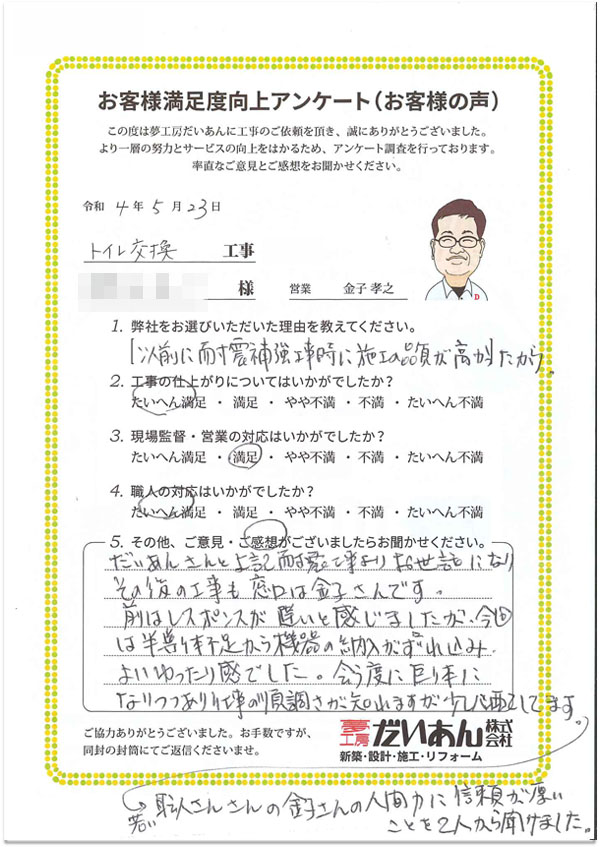 お客様満足度向上アンケート(お客様の声)
この度は夢工房だいあんに工事のご依頼を頂き、誠にありがとうございました。
より一層の努力とサービスの向上をはかるため、アンケート調査を行っております。
率直なご意見とご感想をお聞かせください。
令和 4 年 5 月 23 日
トイレ交換 工事
様 営業 金子 孝之
1. 弊社をお選びいただいた理由を教えてください。
以前に耐震補強工事時に施工の品質が高かったから。
2. 工事の仕上がりについてはいかがでしたか?
たいへん満足 ・ 満足 ・ やや不満 ・ 不満 ・ たいへん不満
3. 現場監督・営業の対応はいかがでしたか?
たいへん満足 ・ 満足 ・ やや不満 ・ 不満 ・ たいへん不満
4. 職人の対応はいかがでしたか?
たいへん満足 ・ 満足 ・ やや不満 ・ 不満 ・ たいへん不満
5. その他、ご意見・ご感想がございましたらお聞かせください。
だいあんさんと上記耐震工事よりお世話になり
その後の工事も窓口は金子さんです。
前はレスポンスが遅いと感じましたが、今回
は半導体不足から機器の納入がずれ込み
よいゆったり感でした。会う度に巨体に
なりつつあり仕事の順調さが知れますが少し心配してます。
ご協力ありがとうございました。お手数ですが、
同封の封筒にてご返信くださいませ。
夢工房 だいあん 株式会社
新築・設計・施工・リフォーム
若い職人さんさんの金子さんの人間力に信頼が厚い
ことを2人から聞けました。